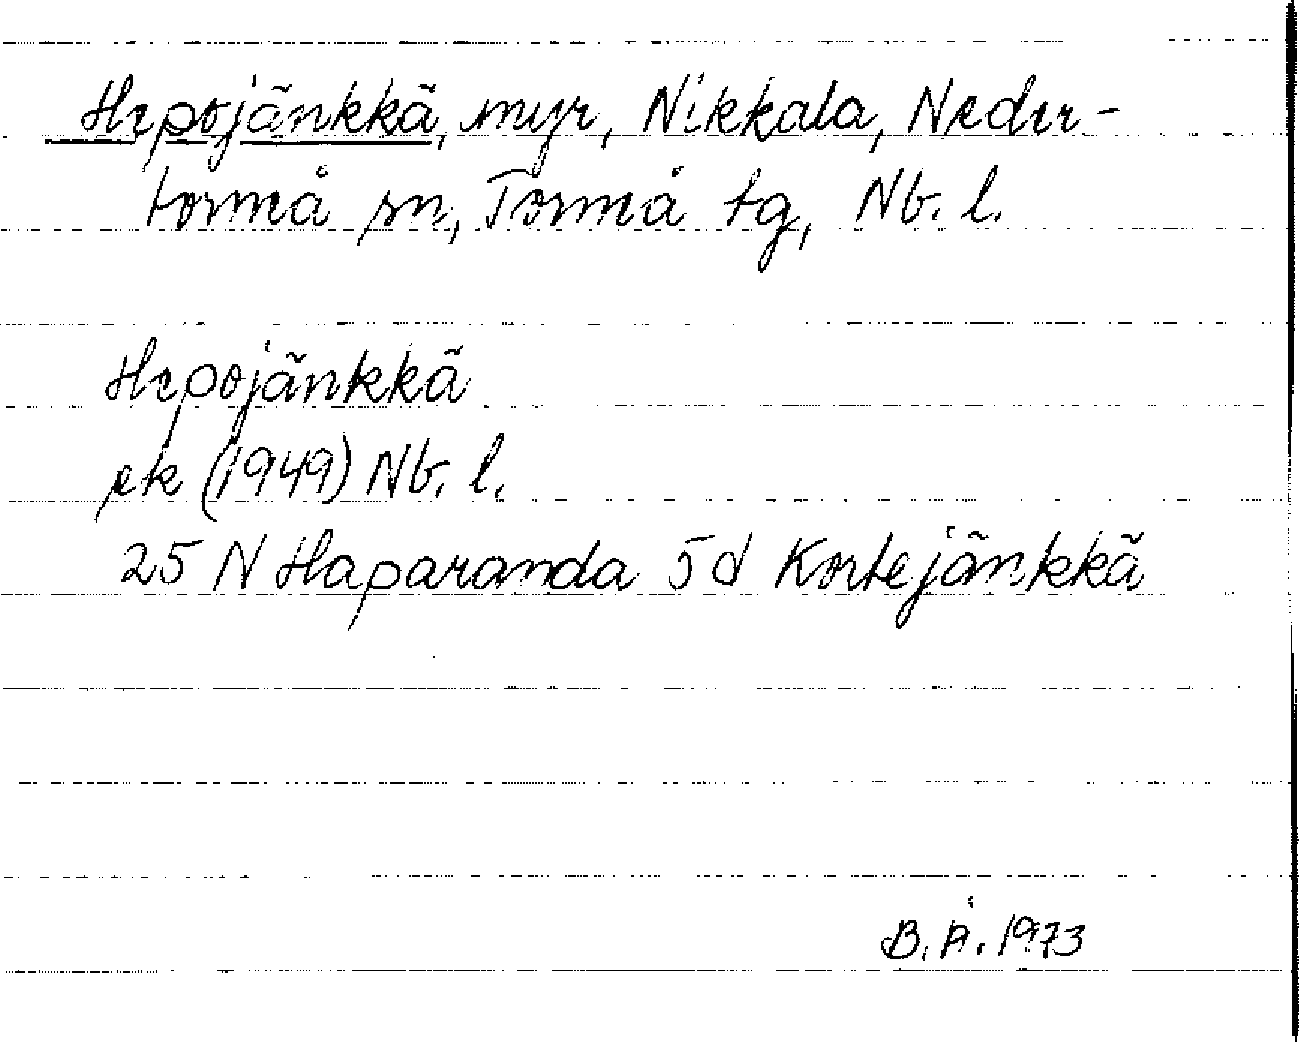 Hepojänkkä, myr, Nikkala, Neder-
torneå sn, Torneå tg, Nb. l.
Hepojänkkä
ek (1949) Nb. l.
25 N Haparanda 5d Kortejänkkä
B. Å. 1973